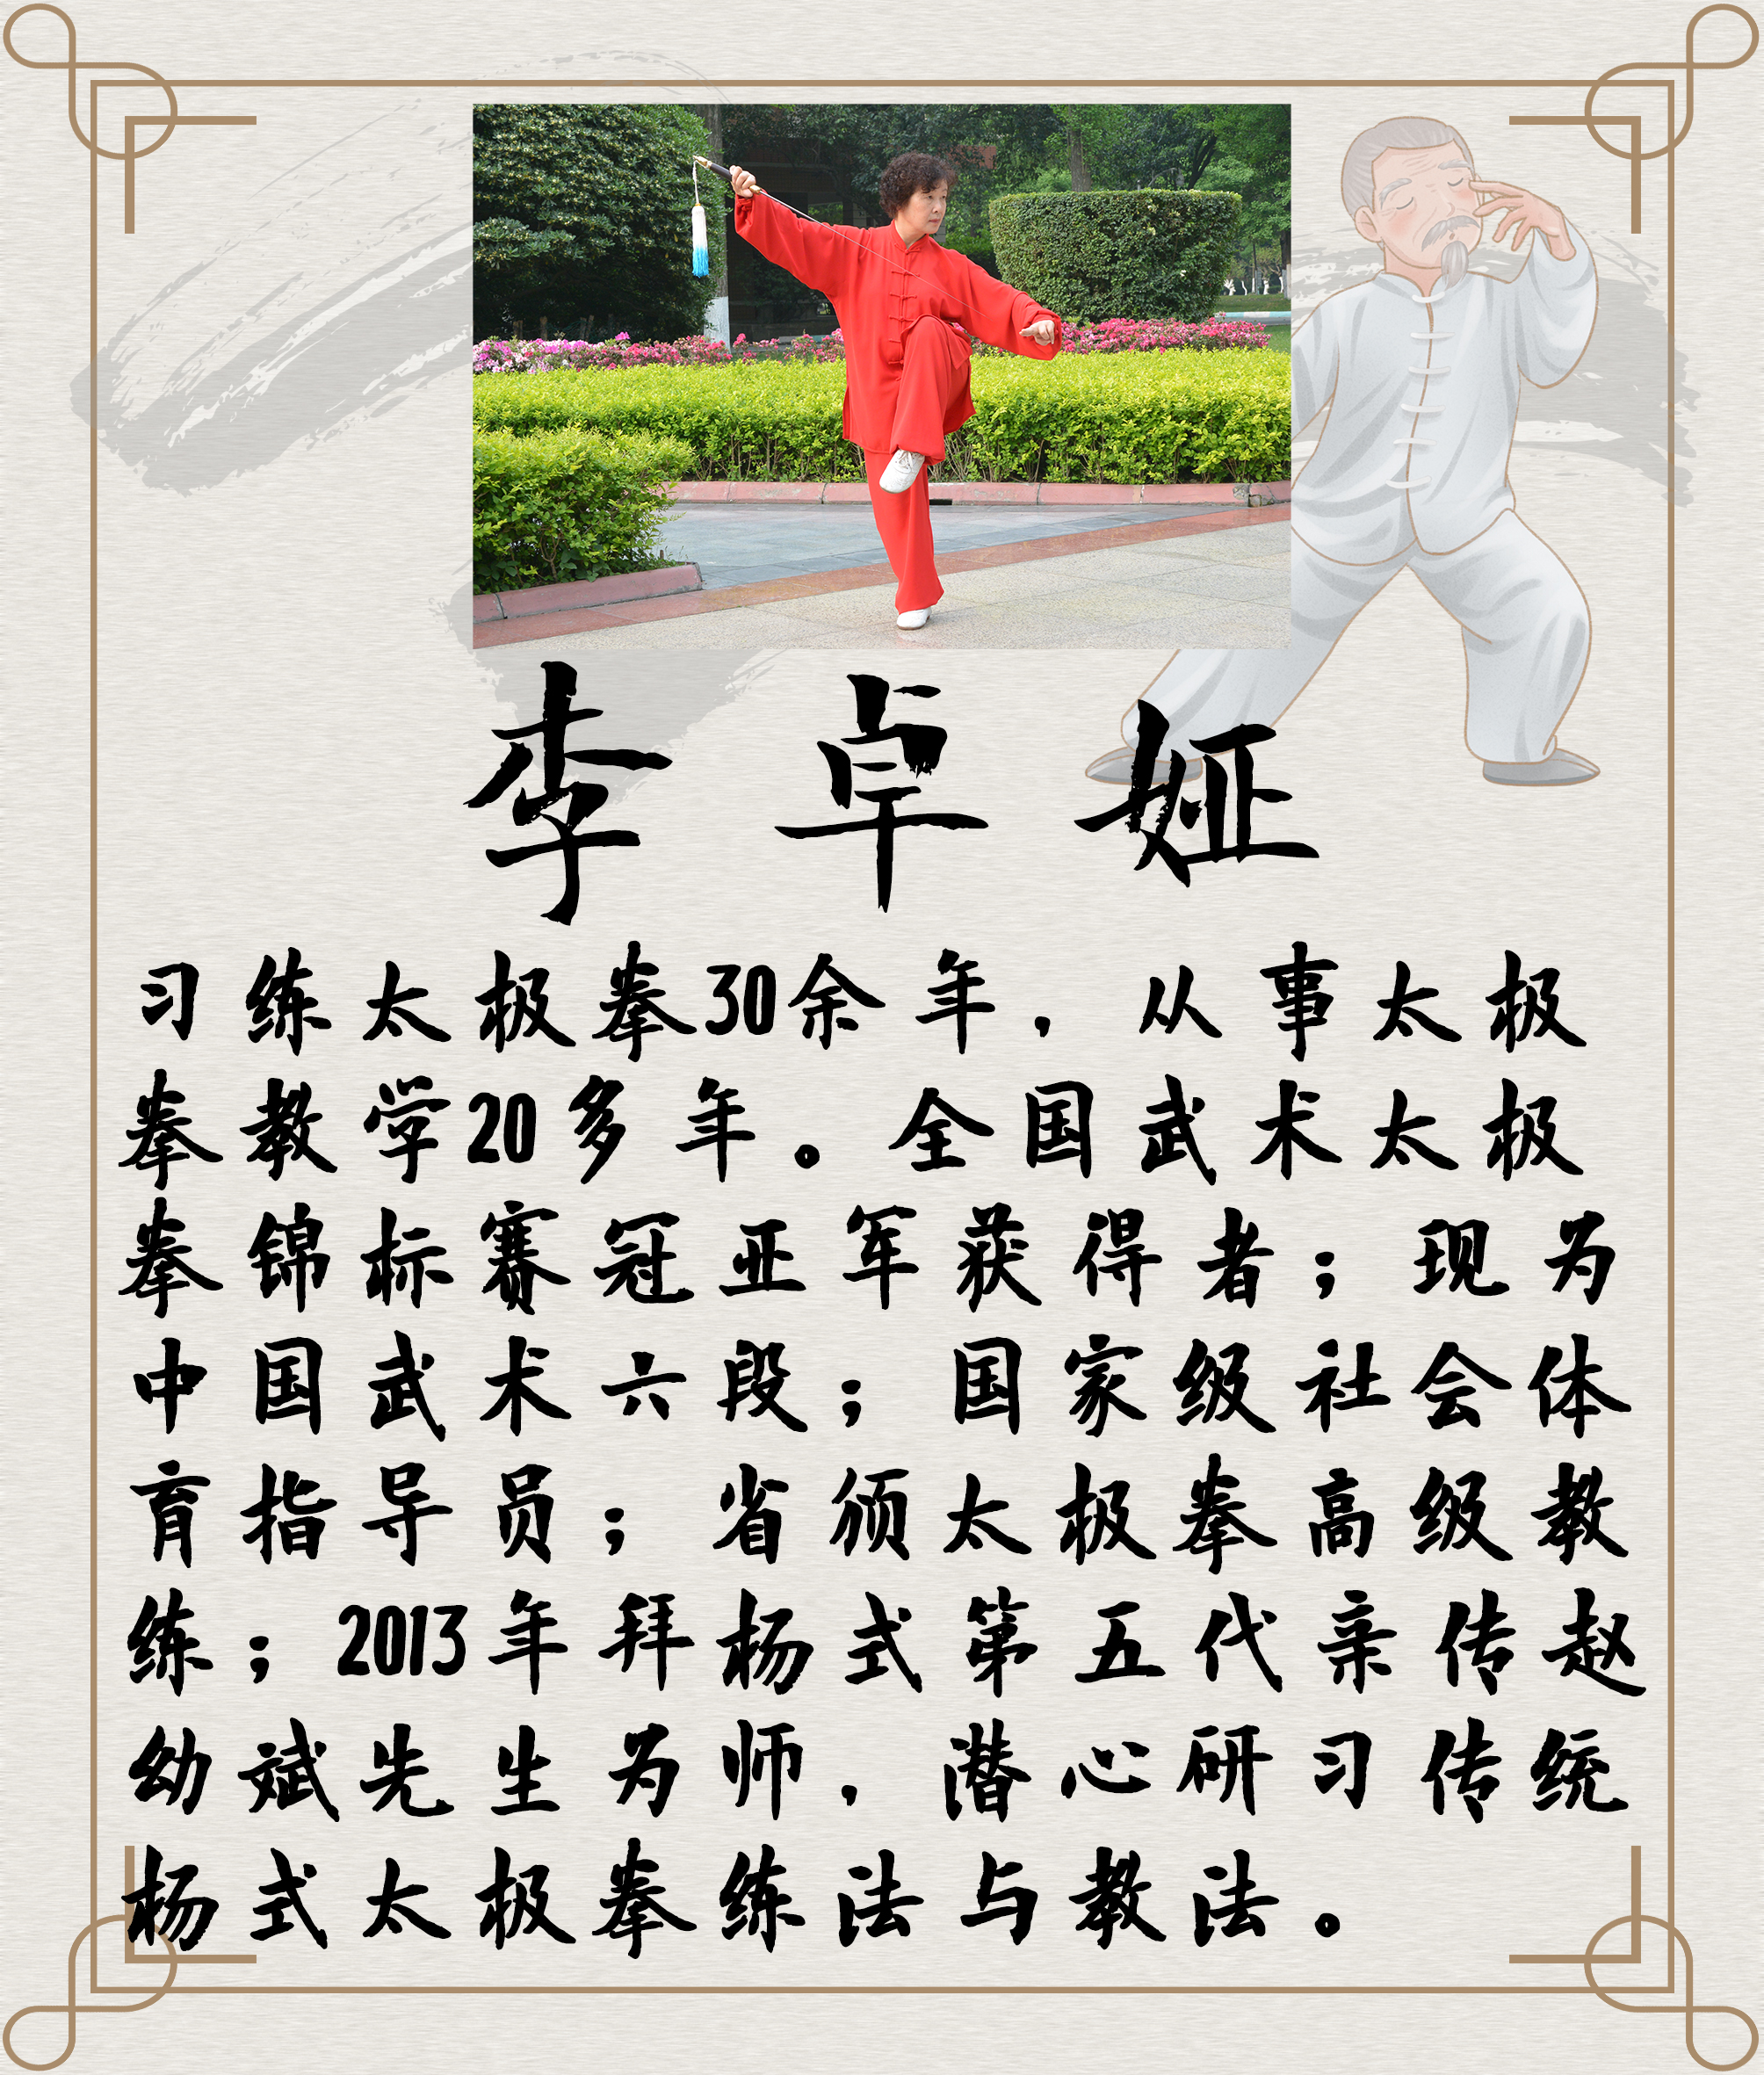 李卓娅
习练太极拳30余年，从事太极
拳教学20多年。全国武术太极
拳锦标赛冠亚军获得者；现为
中国武术六段；国家级社会体
育指导员；省颁太极拳高级教
练；2013年拜杨式第五代亲传赵
幼斌先生为师，潜心研习传统
杨式太极拳练法与教法。